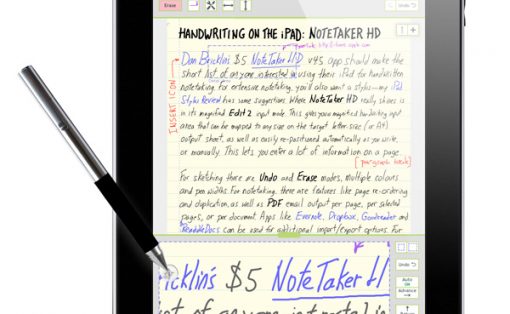 Erase
Undo
HANDWRITING ON THE iPAD: NOTETAKER HD
Dan Bricklin's $5 NoteTaker HD v45 app should make the
short list of anyone interested in using their iPad for handwritten
notetaking. For extensive notetaking, you'll also want a stylus—my iPad
Stylus Review has some suggestions. Where NOTETAKER HD really shines is
in its magnified Edit 2 input mode. This gives you a magnified handwriting input
area that can be mapped to any size on the target letter-size (or A4)
output sheet, as well as easily re-positioned automatically as you write,
or manually. This lets you enter a lot of information on a page.
INSERT ICON
For sketching there are Undo and Erase modes, multiple colours
and pen widths. For notetaking, there are features like page re-ordering
and duplication, as well as PDF email output per page, per selected
pages, or per document. Apps like Evernote, Dropbox, Goodreader and
ReaddleDocs can be used for additional import/export options. For
Undo
icklin's $5 NoteTaker H
Auto
ON
Advance